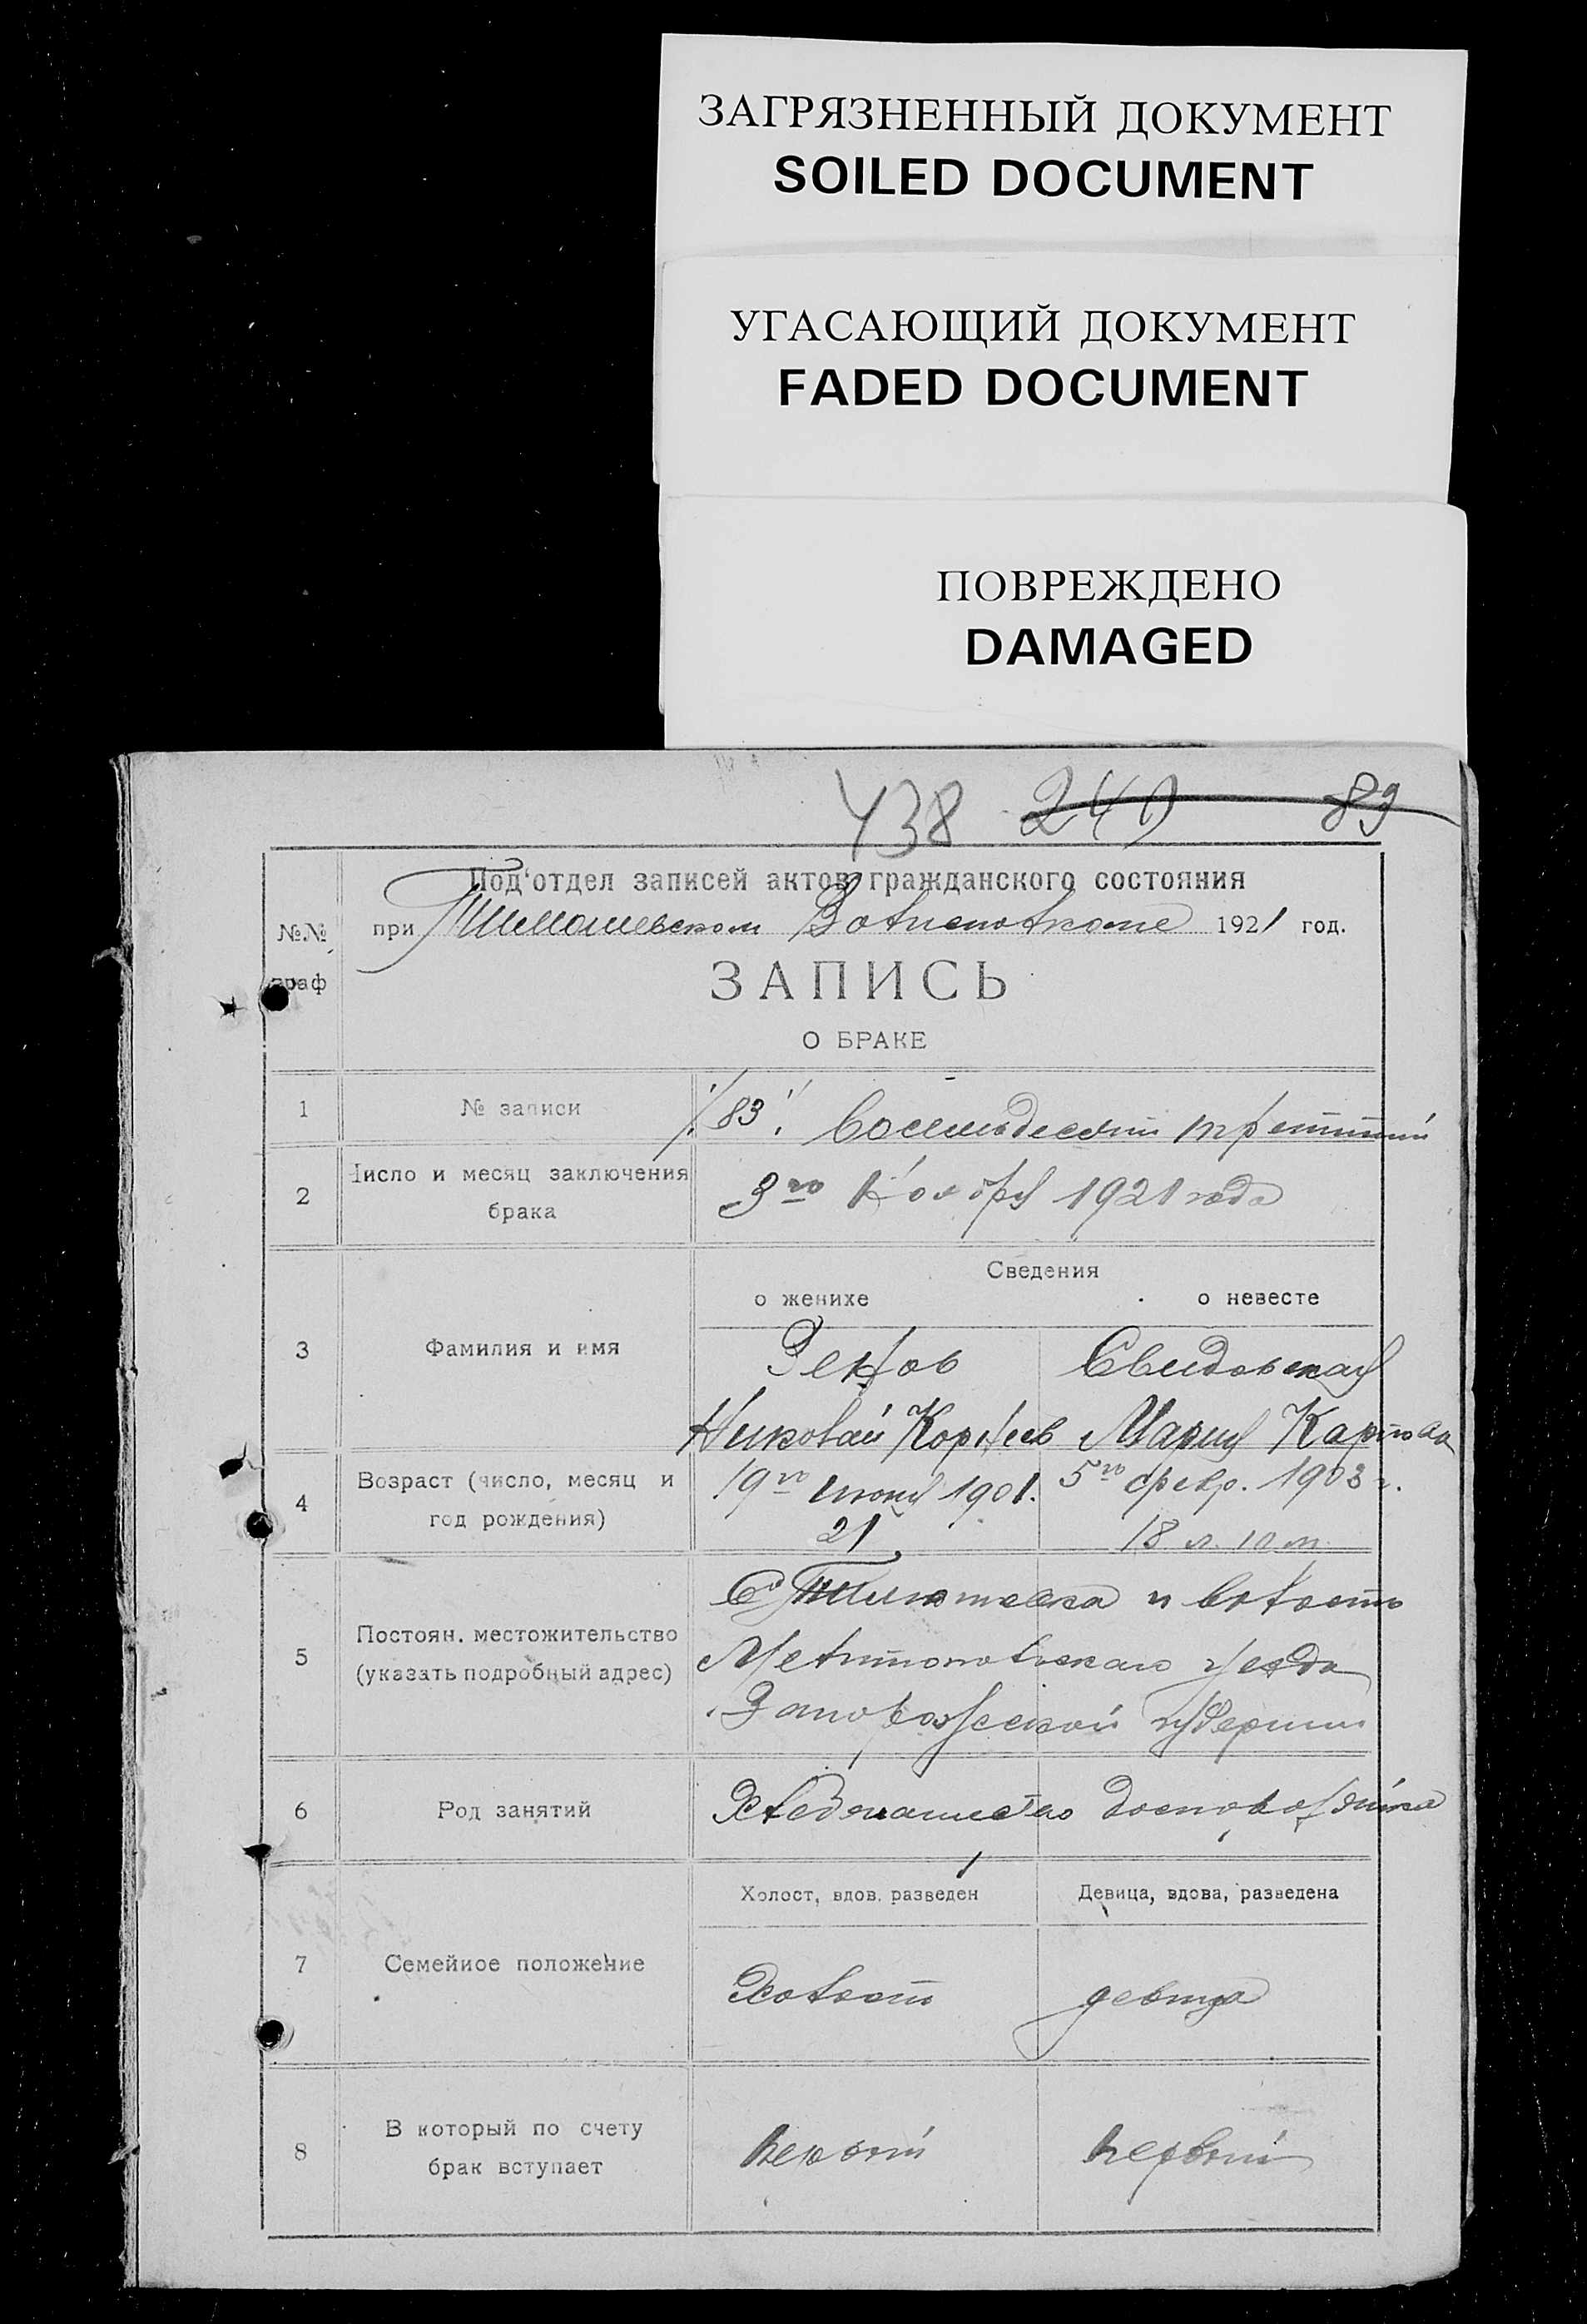 ЗАГРЯЗНЕННЫЙ ДОКУМЕНТ
SOILED DOCUMENT
УГАСАЮЩИЙ ДОКУМЕНТ
FADED DOCUMENT
ПОВРЕЖДЕНО
DAMAGED
438 83
Под'отдел записей актов гражданского состояния
№№ граф
при Тимошевском Волисполкоме 1921 год.
ЗАПИСЬ
О БРАКЕ
1 № записи 83 Восемьдесят третий
2 Число и месяц заключения брака 3го Ноября 1921 года
Сведения
о женихе о невесте
3 Фамилия и имя
Свидовская
Николай Корнеев Мария Карпова
4 Возраст (число, месяц и год рождения)
19го июня 1901. 5го февр. 1903 г.
21 18 л. 10 м.
5 Постоян. местожительство (указать подробный адрес)
С. Тимошевка и волость
Мелитопольскаго уезда
Запорожской губернии
6 Род занятий Хлебопашество домохозяйка
7 Семейное положение
Холост, вдов, разведен Девица, вдова, разведена
Холост девица
8 В который по счету брак вступает
первый первый